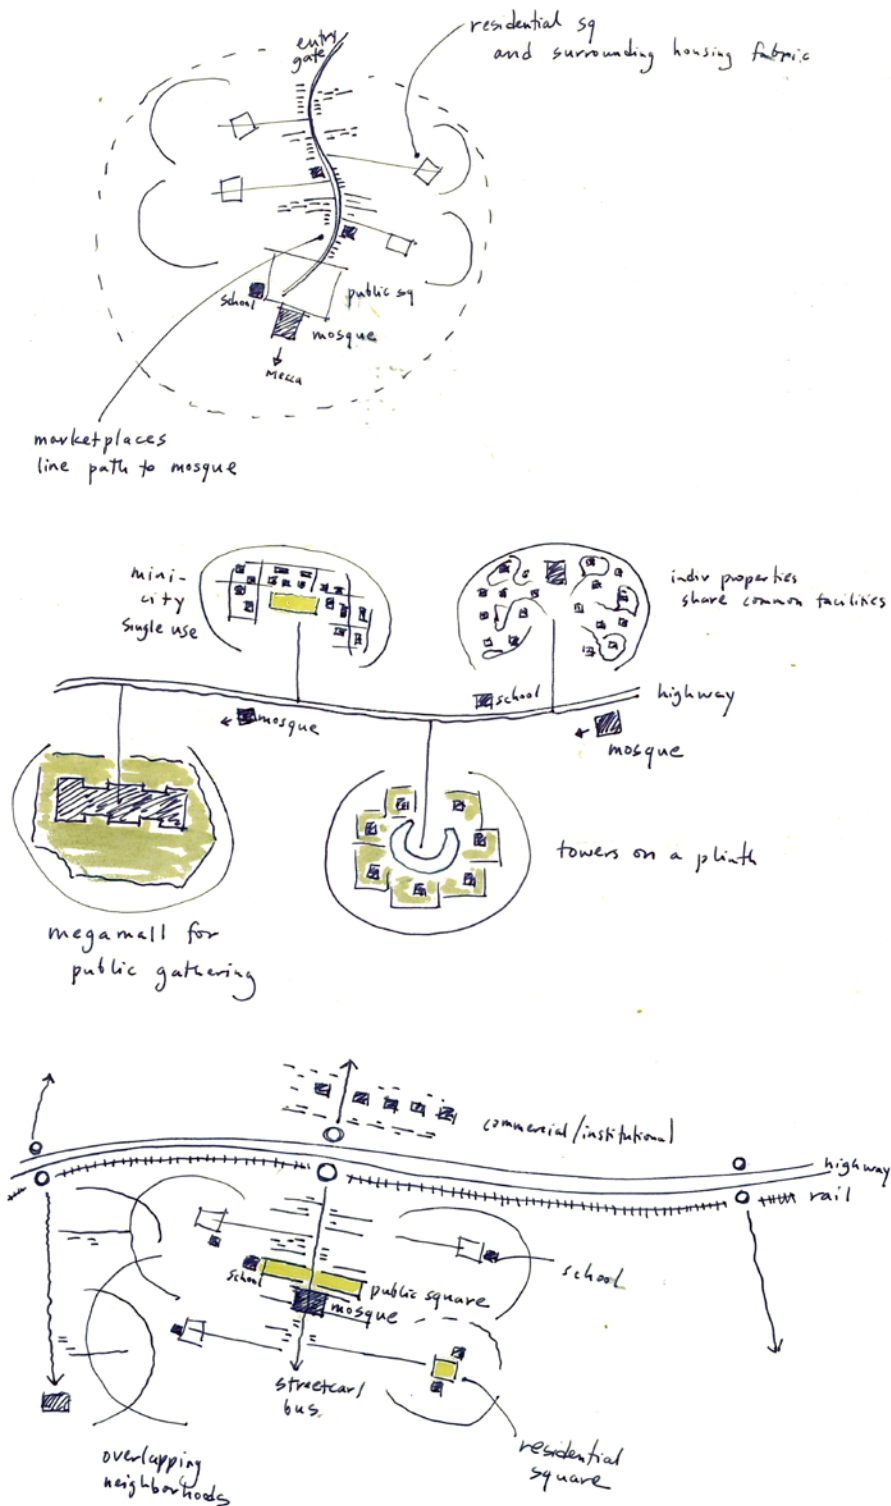 entry
gate
residential sq
and surrounding housing fabric
school
public sq
mosque
Mecca
marketplaces
line path to mosque
mini-
city
single use
indiv properties
share common facilities
school
highway
mosque
mosque
towers on a plinth
megamall for
public gathering
commercial/institutional
highway
rail
school
school
public square
mosque
streetcar/
bus
residential
square
overlapping
neighborhoods